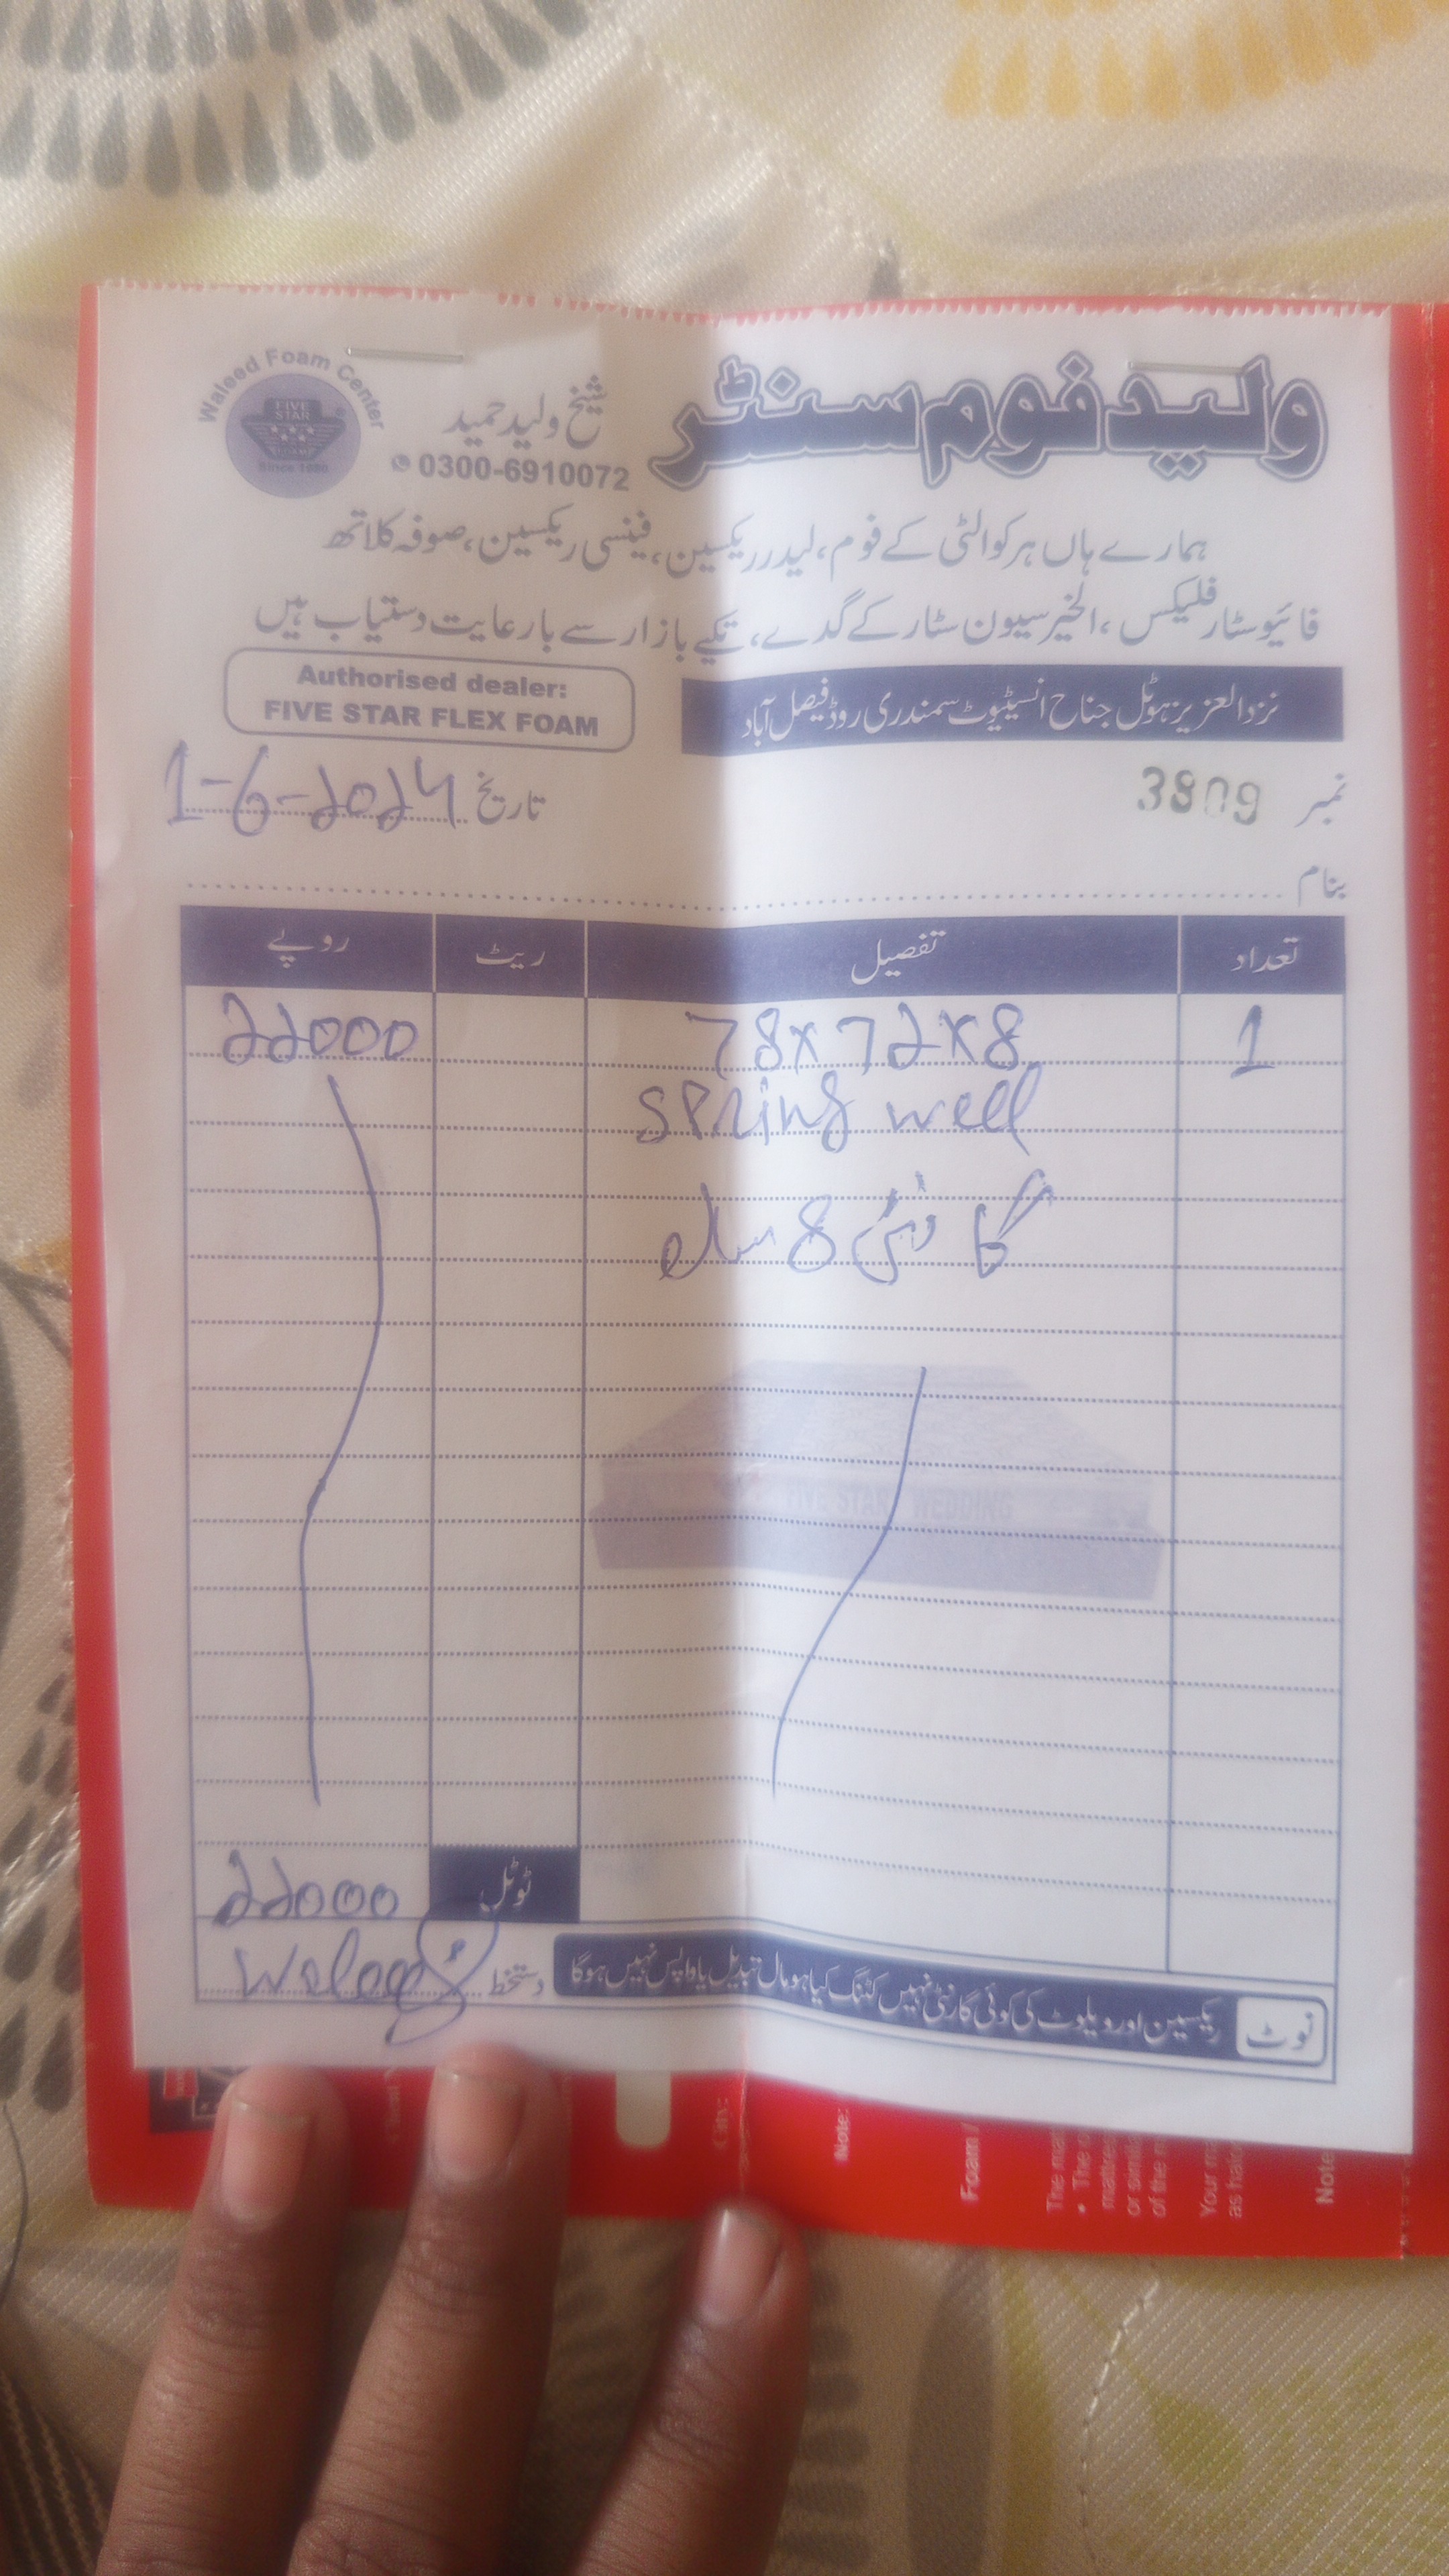 ولید فوم سنٹر
شیخ ولید حمید
0300-6910072
Waleed Foam Center
FIVE STAR
ہمارے ہاں ہر کوالٹی کے فوم، لیدر ریکسین، فینسی ریکسین، صوفہ کلاتھ
فائیو سٹار فلیکس، الخیر سیون سٹار کے گدے، تکیے بازار سے بارعایت دستیاب ہیں
Authorised dealer:
FIVE STAR FLEX FOAM
نزد العزیز ہوٹل جناح انسٹیٹیوٹ سمندری روڈ فیصل آباد
نمبر 3809
تاریخ 1-6-2024
بنام
تعداد تفصیل ریٹ روپے
1 78x72x8 22000
spring well
گارنٹی 8 سال
FIVE STAR WEDDING
ٹوٹل 22000
دستخط Waleed
نوٹ ریکسین اور ویلوٹ کی کوئی گارنٹی نہیں کٹنگ کیا ہو مال تبدیل یا واپس نہیں ہوگا
City:
Note:
Foam /
The ma
• The
mattres
or simila
of the
Your ma
as
Note